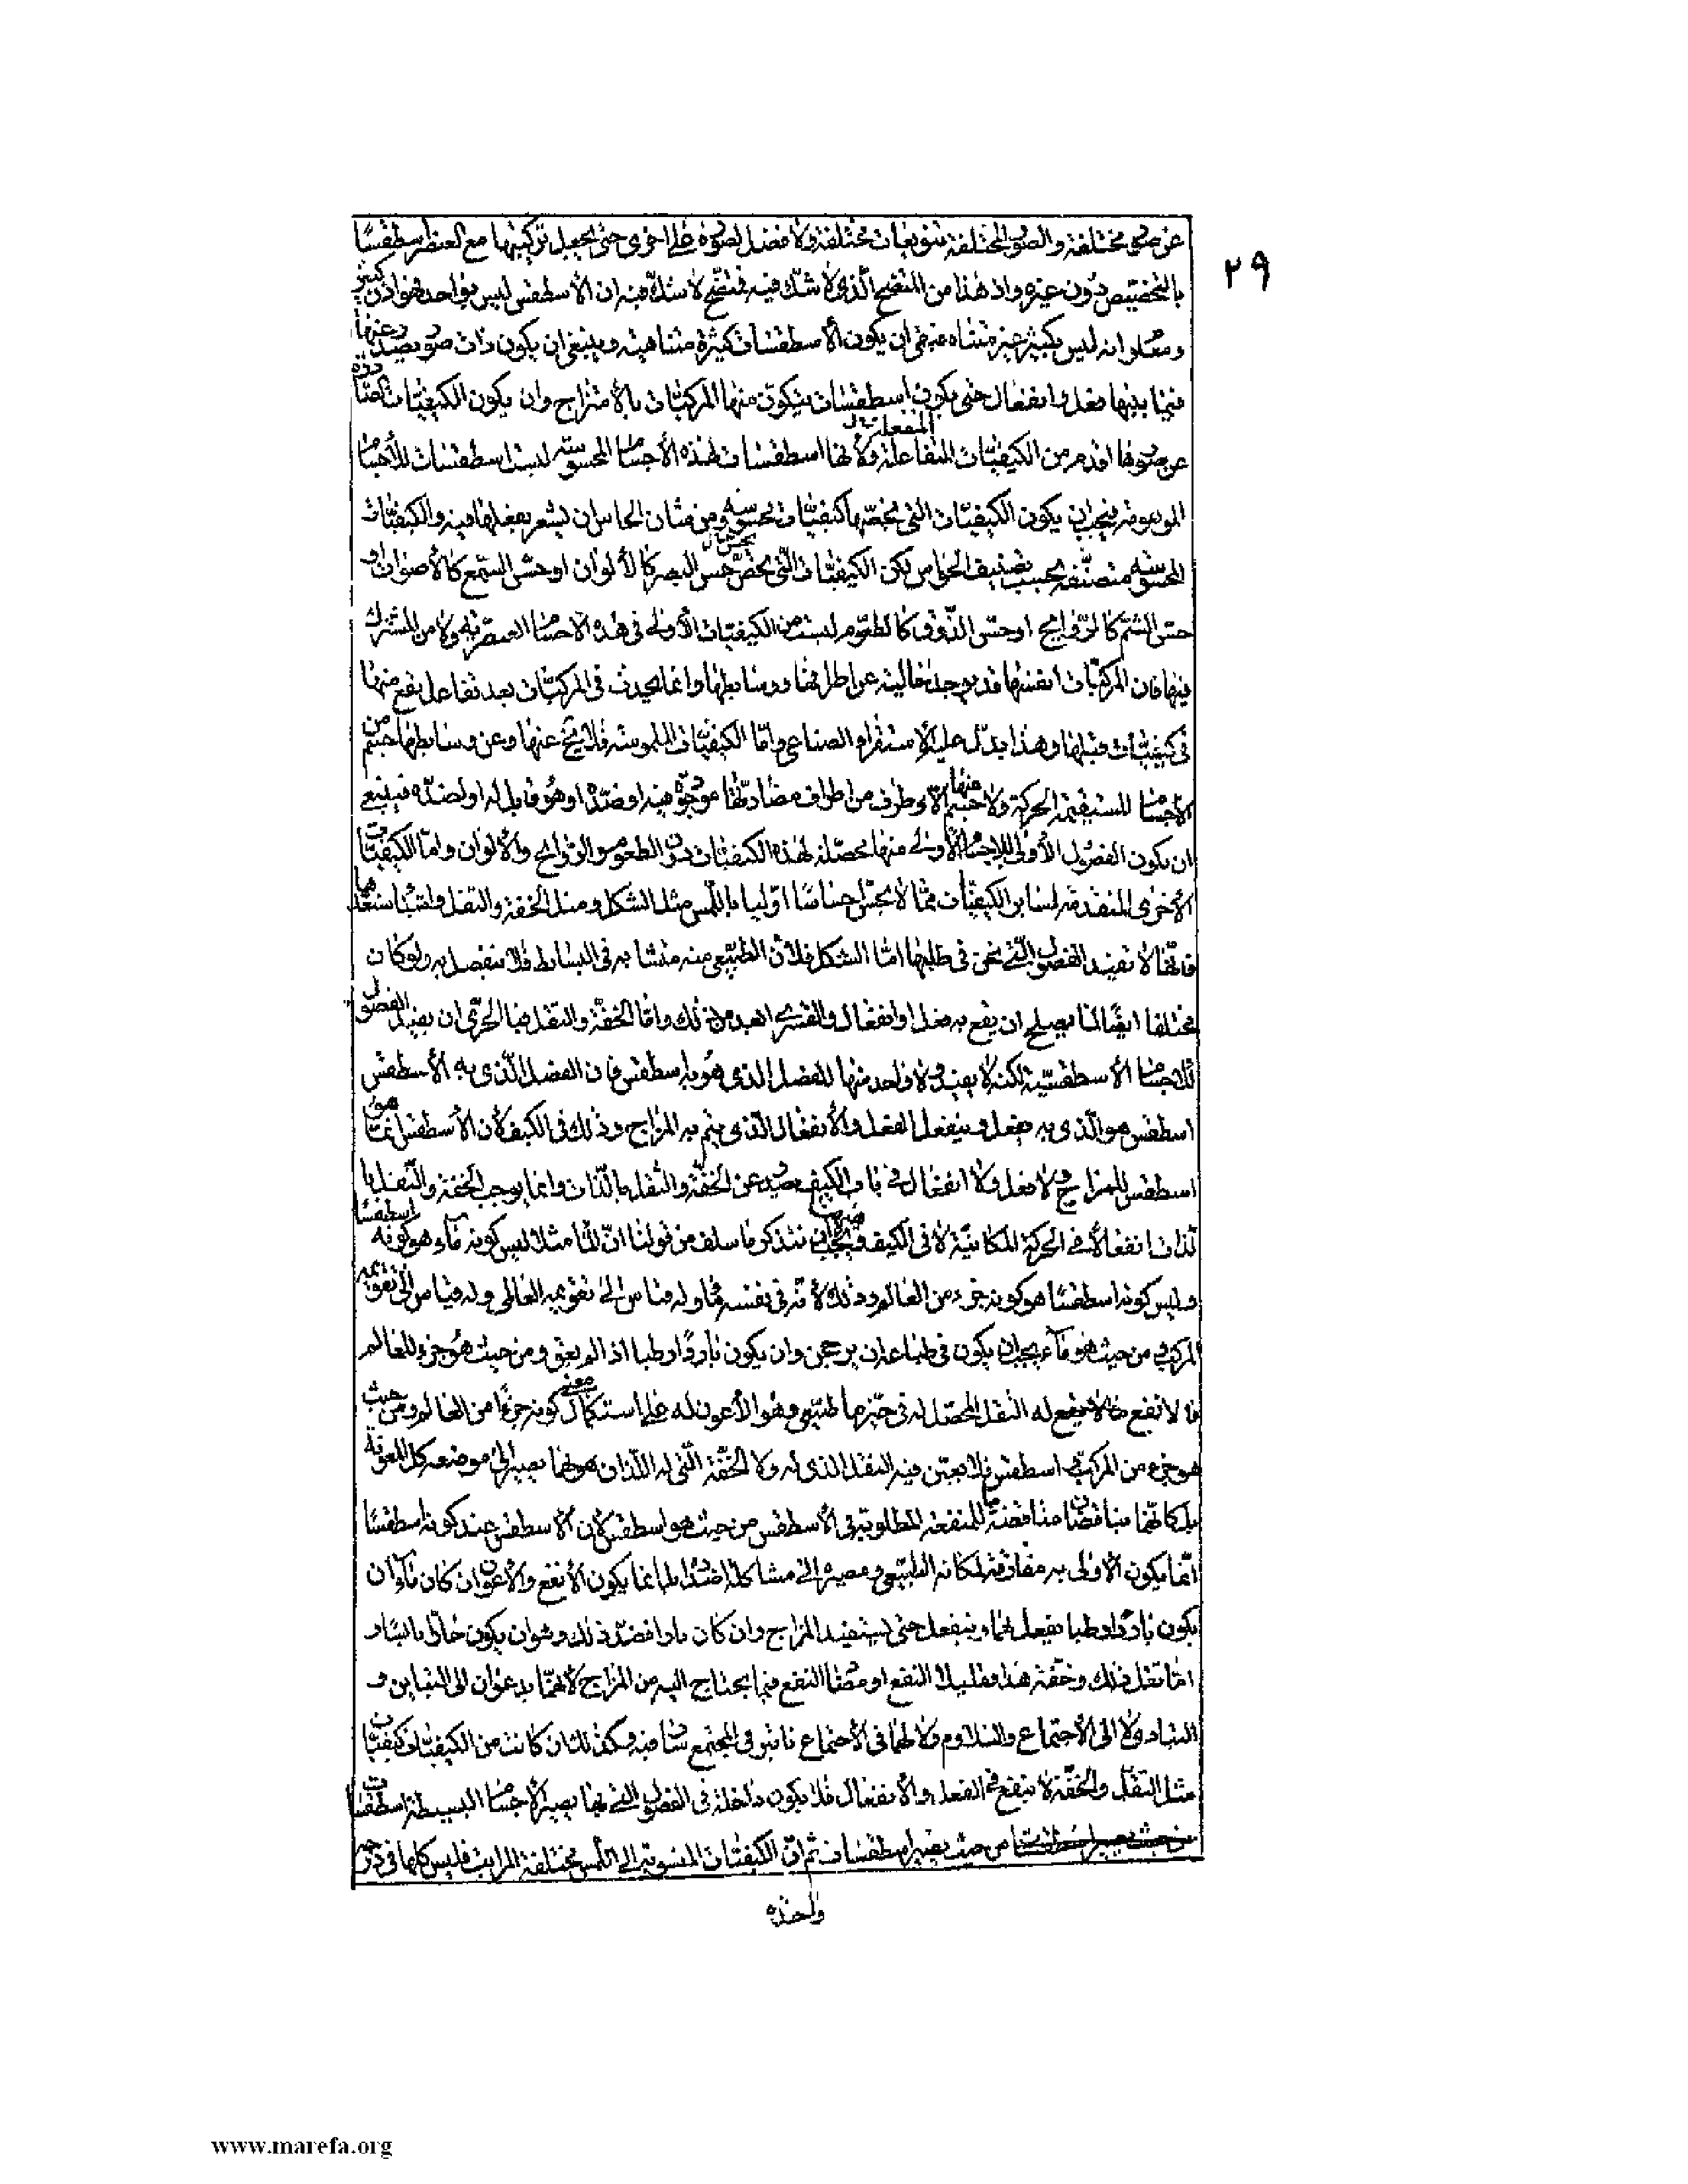 ٢٩
عن صور مختلفة والصور المختلفة تنويعات مختلفة ولا فضل لصورة على اخرى حتى يجعل تركيبها مع العنصر اسطقسًا
بالتخصيص دون غيره واذ هذا من المتضح الذى لا شك فيه فتضح لا شك فيه ان الأسطقس ليس بواحد فهو اذن كثير
ومعلوم انه ليس بكثير غير متناه فبقى ان يكون الأسطقسات كثيرة متناهية وينبغى ان يكون ذات صور يصدر عنها
فيما بينها فعل وانفعال حتى يكون اسطقسات يتكون منها المركبات بالأمتزاج وان يكون الكيفيات الصادرة
عن صورها اقدم من الكيفيات المتفاعلة المنفعلة ولأنها اسطقسات لهذه الأجسام المحسوسة ليست اسطقسات للأجسام
الموهومة فيجب ان يكون الكيفيات التى تخصّها كيفيات محسوسة ومن شان الحاس ان يشعر بفعلها فيه والكيفيات
المحسوسة متصنفة بحسب تصنيف الحواس لكن الكيفيات التى تخصّ حس البصر كالألوان او حسّ السمع كالأصوات او
حسّ الشم كالروايح او حسّ الذوق كالطعوم ليست من الكيفيات الأولى فى هذه الاجسام العنصرية ولا من المشترك
فيها فان المركبات انفسها قد يوجد خالية عن اطرافها ووسايطها وانما يحدث فى المركبات بعد تفاعل يقع منها
فى كيفيات قبلها وهذا يدل عليه الاستقراء الصناعى وامّا الكيفيات الملموسة فلا يخ عنها وعن وسايطها جسم من
الأجسام المستقيمة الحركة ولا جسم منها الا وطرف من اطراف مضادتها موجود فيه او ضدّه او هو قابل له او لضدّه فينبغى
ان يكون الفصول الأولى للاجسام الأولى منها محصلة لهذه الكيفيات دون الطعوم والروايح والألوان وامّا الكيفيات
الأخرى المتقدمة لساير الكيفيات ممّا لا يحسّ احساسًا اوليا باللمس مثل الشكل ومثل الخفة والثقل
فانّها لا تفيد الفصول التى نحن فى طلبها امّا الشكل فلأن الطبيعى منه متشابه فى البسايط فلا ينفصل به ولو كان
مختلفا ايضًا لما يصلح ان يقع به فعل او انفعال والقسرى ابعد من ذلك وامّا الخفة والثقل فبالحرى ان يفيد الفصول
للاجسام الأسطقسّية لكنه لا يفيد ولا واحد منها للفصل الذى هو به اسطقس فان الفصل الذى به الأسطقس
اسطقس هو الذى به يفعل وينفعل الفعل والأنفعال الذى يتم به المزاج وذلك فى الكيف لأن الأسطقس انما هو
اسطقس للمزاج ولا فعل ولا انفعال فى باب الكيف يصدر عن الخفة والثقل بالذات وانما يوجب الخفة والثقل با
لذات انفعالا فى الحركة المكانية لا فى الكيف ويجب ان نتذكر ما سلف من قولنا انّ الماء مثلا ليس كونه ماء هو كونه اسطقسًا
وليس كونه اسطقسًا هو كونه جزء من العالم وذلك لأنّه فى نفسه ماء وله قياس الى تقويمه العالم وله قياس الى تقويمه
المركب ومن حيث هو ماء يجب ان يكون فى طباعه ان يرجحن وان يكون باردًا رطبا اذا لم يعق ومن حيث هو جزء للعالم
فالانفع له الثقل المحصّل له فى حيزها طبيعى وهو الأعون له على استكمال معنى كونه جزءًا من العالم ومن حيث
هو جزء من المركب اسطقس فلا يعتبر فيه الثقل الذى له ولا الخفّة التى له اللذان هو بهما يصير الى موضعه كل المعونة
بل كانّهما يناقضان مناقضة ما للمنفعة المطلوبة فى الأسطقس من حيث هو اسطقس لان الأسطقس عند كونه اسطقسًا
انّما يكون الأولى به مفارقة لمكانه الطبيعى ومصيره الى مشاكلة اضداده انما يكون الأنفع والأعون ان كان ماء ان
يكون باردًا رطبا يفعل بهما وينفعل حتى يستفيد المزاج وان كان نارا فضدّ ذلك وهو ان يكون حارّا يابسًا و
امّا ثقل ذلك وخفة هذا فقليل النفع او مضاد النفع فيما يحتاج اليه من المزاج لأنهمّا يدعوان الى التباين و
التباعد ولا الى الأجتماع والتلاوم ولا لهما فى الأجتماع تاثير فى المجتمع فكذلك ان كانت من الكيفيات كيفيات
مثل الثقل والخفة لا ينفع فى الفعل والأنفعال فلا يكون داخلة فى الفصول التى بها يصير الاجسام البسيطة اسطقسات
من حيث يصير اسطقسات ثم ان الكيفيات المنسوبة الى اللمس مختلفة المراتب فليس كلها فى درجة
واحده
www.marefa.org